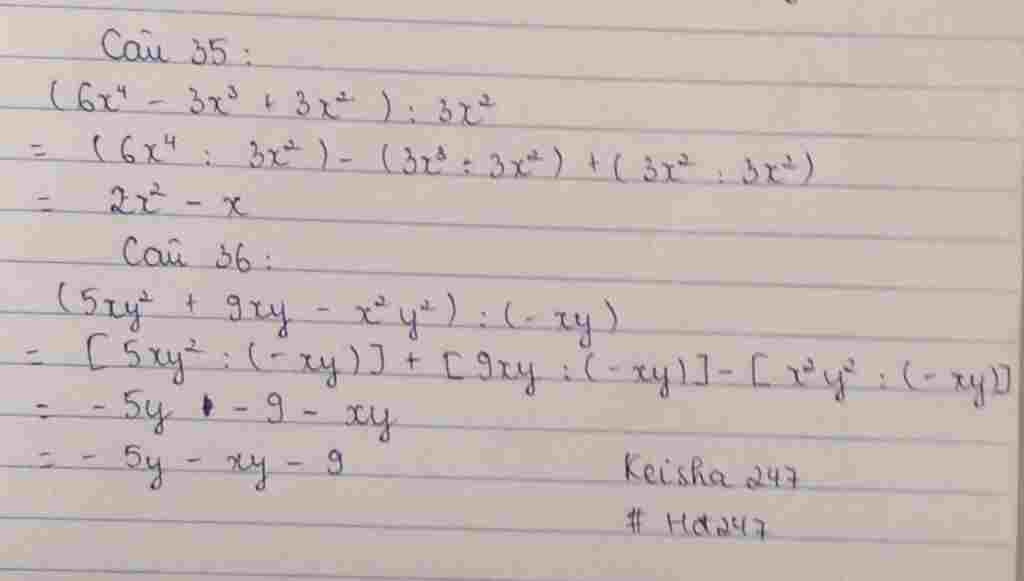 Câu 35 :
(6x⁴ - 3x³ + 3x²) : 3x²
= (6x⁴ : 3x²) - (3x³ : 3x²) + (3x² : 3x²)
= 2x² - x
Câu 36 :
(5xy² + 9xy - x²y²) : (- xy)
= [5xy² : (- xy)] + [9xy : (- xy)] - [x²y² : (- xy)]
= - 5y - 9 - xy
= - 5y - xy - 9
Keisha 247
# Hd247